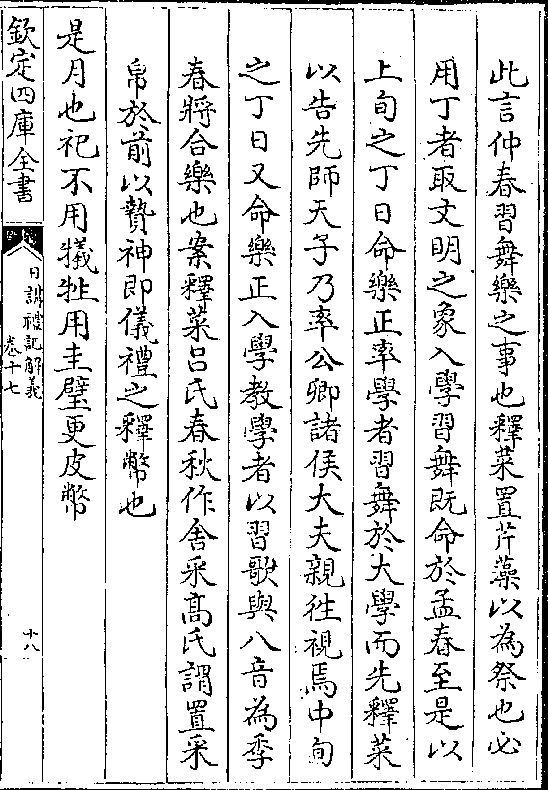 此言仲春習舞樂之事也釋菜置芹藻以為祭也必
用丁者取文明之象入學習舞既命於孟春至是以
上旬之丁日命樂正率學者習舞於大學而先釋菜
以告先師天子乃率公卿諸侯大夫親徃視焉中旬
之丁日又命樂正入學教學者以習歌與八音為季
春將合樂也案釋菜吕氏春秋作舍采髙氏謂置采
帛於前以贄神即儀禮之釋幣也
是月也祀不用犧牲用圭璧更皮幣
欽定四庫全書
日講禮記解義
卷十七
十八